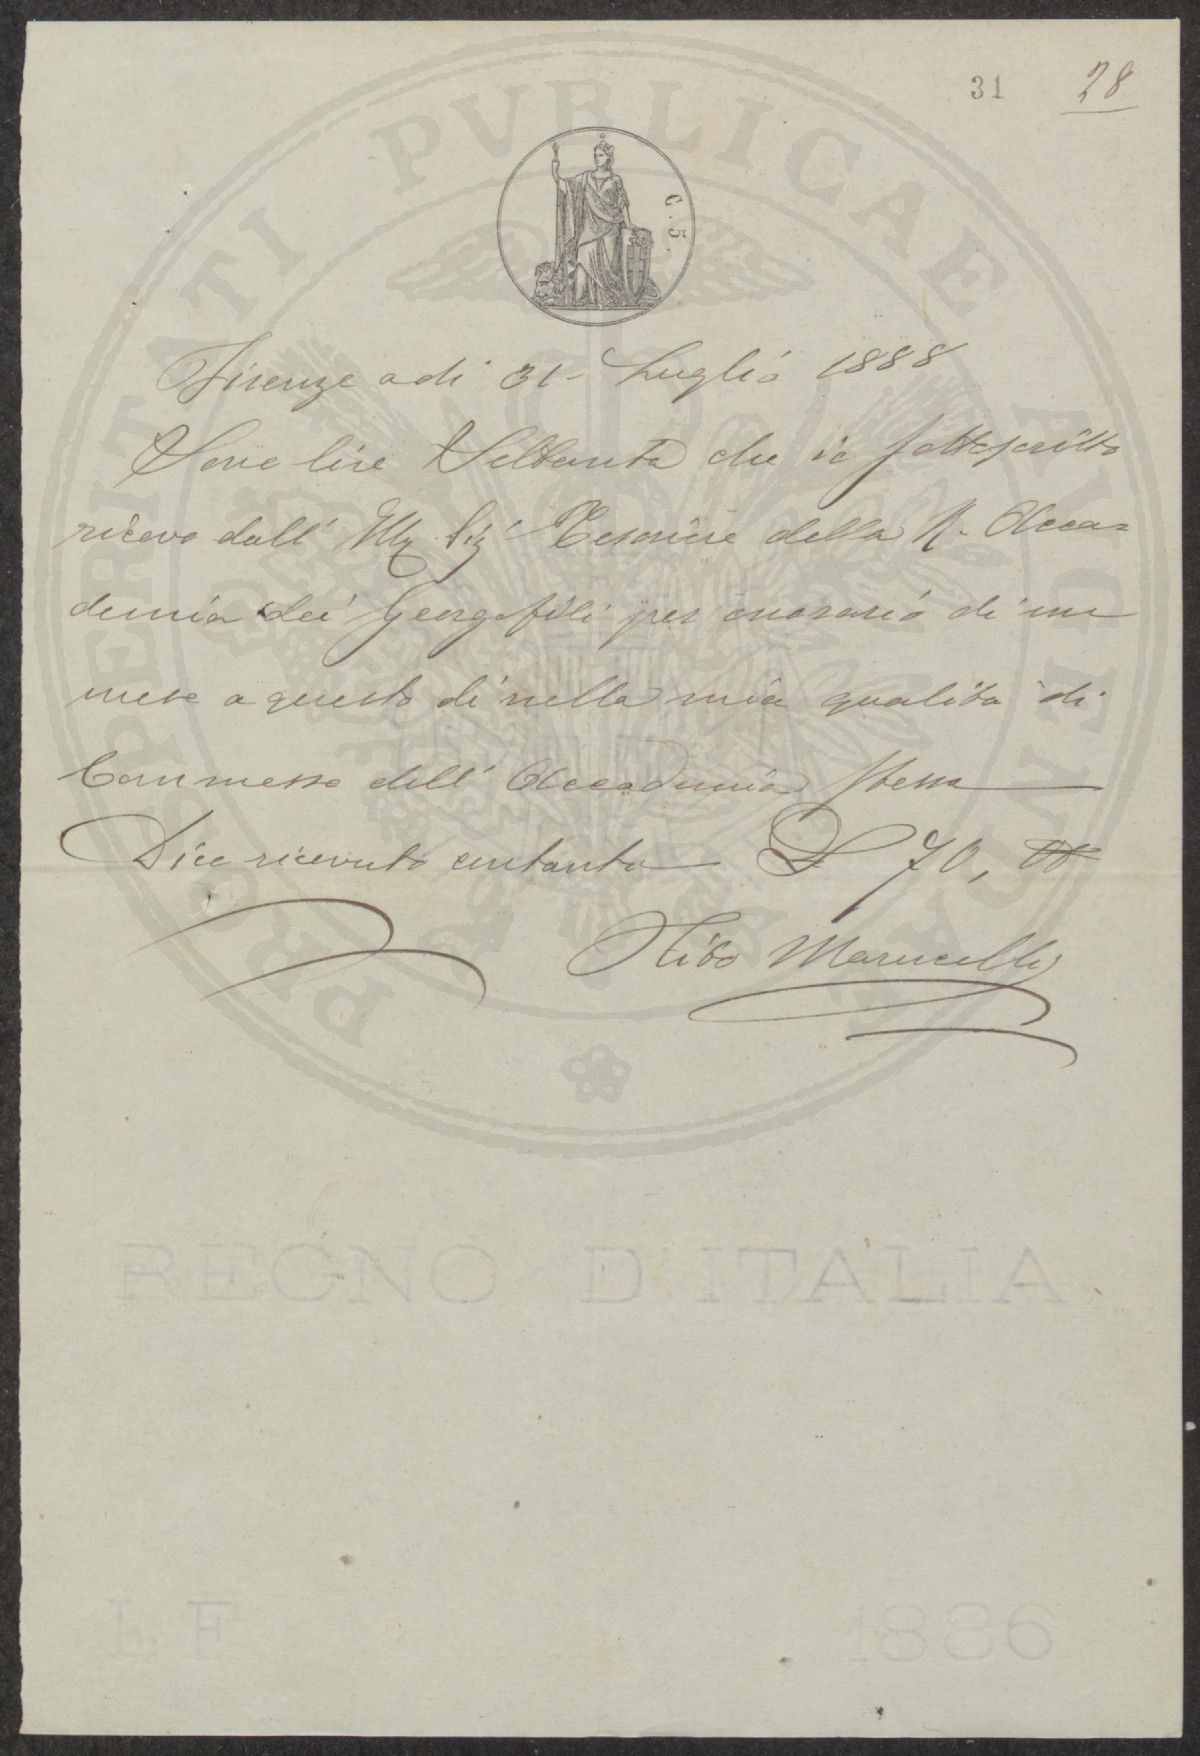 31 28
PROSPERITATI PVBLICAE AVGENDAE
C. 5.
Firenze a dì 31 - Luglio 1888
Sono lire Settanta che io sottoscritto
ricevo dall' Illº Sig' Tesoriere della R. Acca=
demia dei Georgofili per onorario di un
mese a questo dì nella mia qualità di
Commesso dell' Accademia stessa
Dico ricevuto contanti L 70, 00
Marucelli
REGNO D'ITALIA
L F 1886